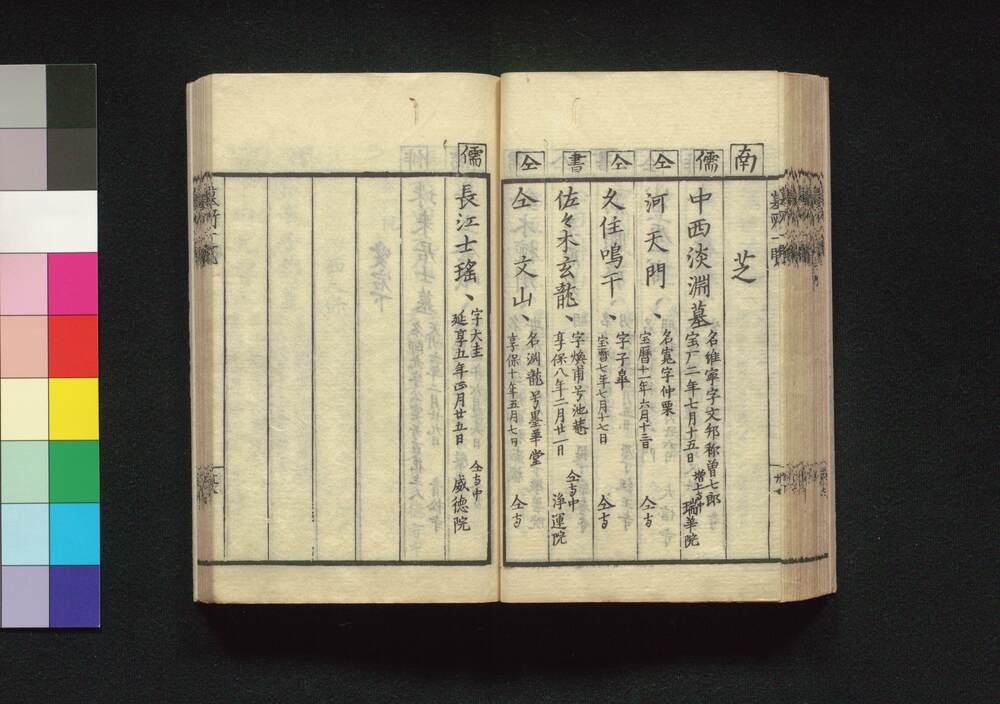 南
芝
儒
中西淡淵墓
名維寧字文邦称曽七郎
宝厂二年七月十五日
増上寺中
瑞華院
仝
河天門、
名寛字仲栗
宝暦十一年六月十二日
仝寺
仝
久住鳴干、
字子皐
宝暦七年七月十七日
仝寺
書
佐々木玄龍、
字煥甫号池菴
享保八年二月廿一日
仝寺中
浄運院
仝
仝文山、
名渕龍号墨華堂
享保十年五月七日
仝寺
儒
長江士瑤、
字大圭
延享五年四月廿五日
仝寺中
威徳院
墓所一覧